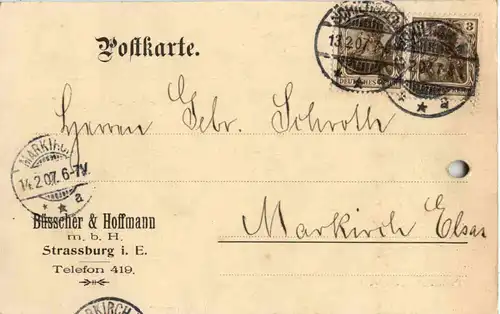 Postkarte.
13.2.07. 7-
3
Herren Gebr. Schroth
MARKIRCH
14.2.07. 6-7V.
* * a
Büsscher & Hoffmann
m. b. H.
Strassburg i. E.
Telefon 419.
Markirch Elsas
ARKIRCH